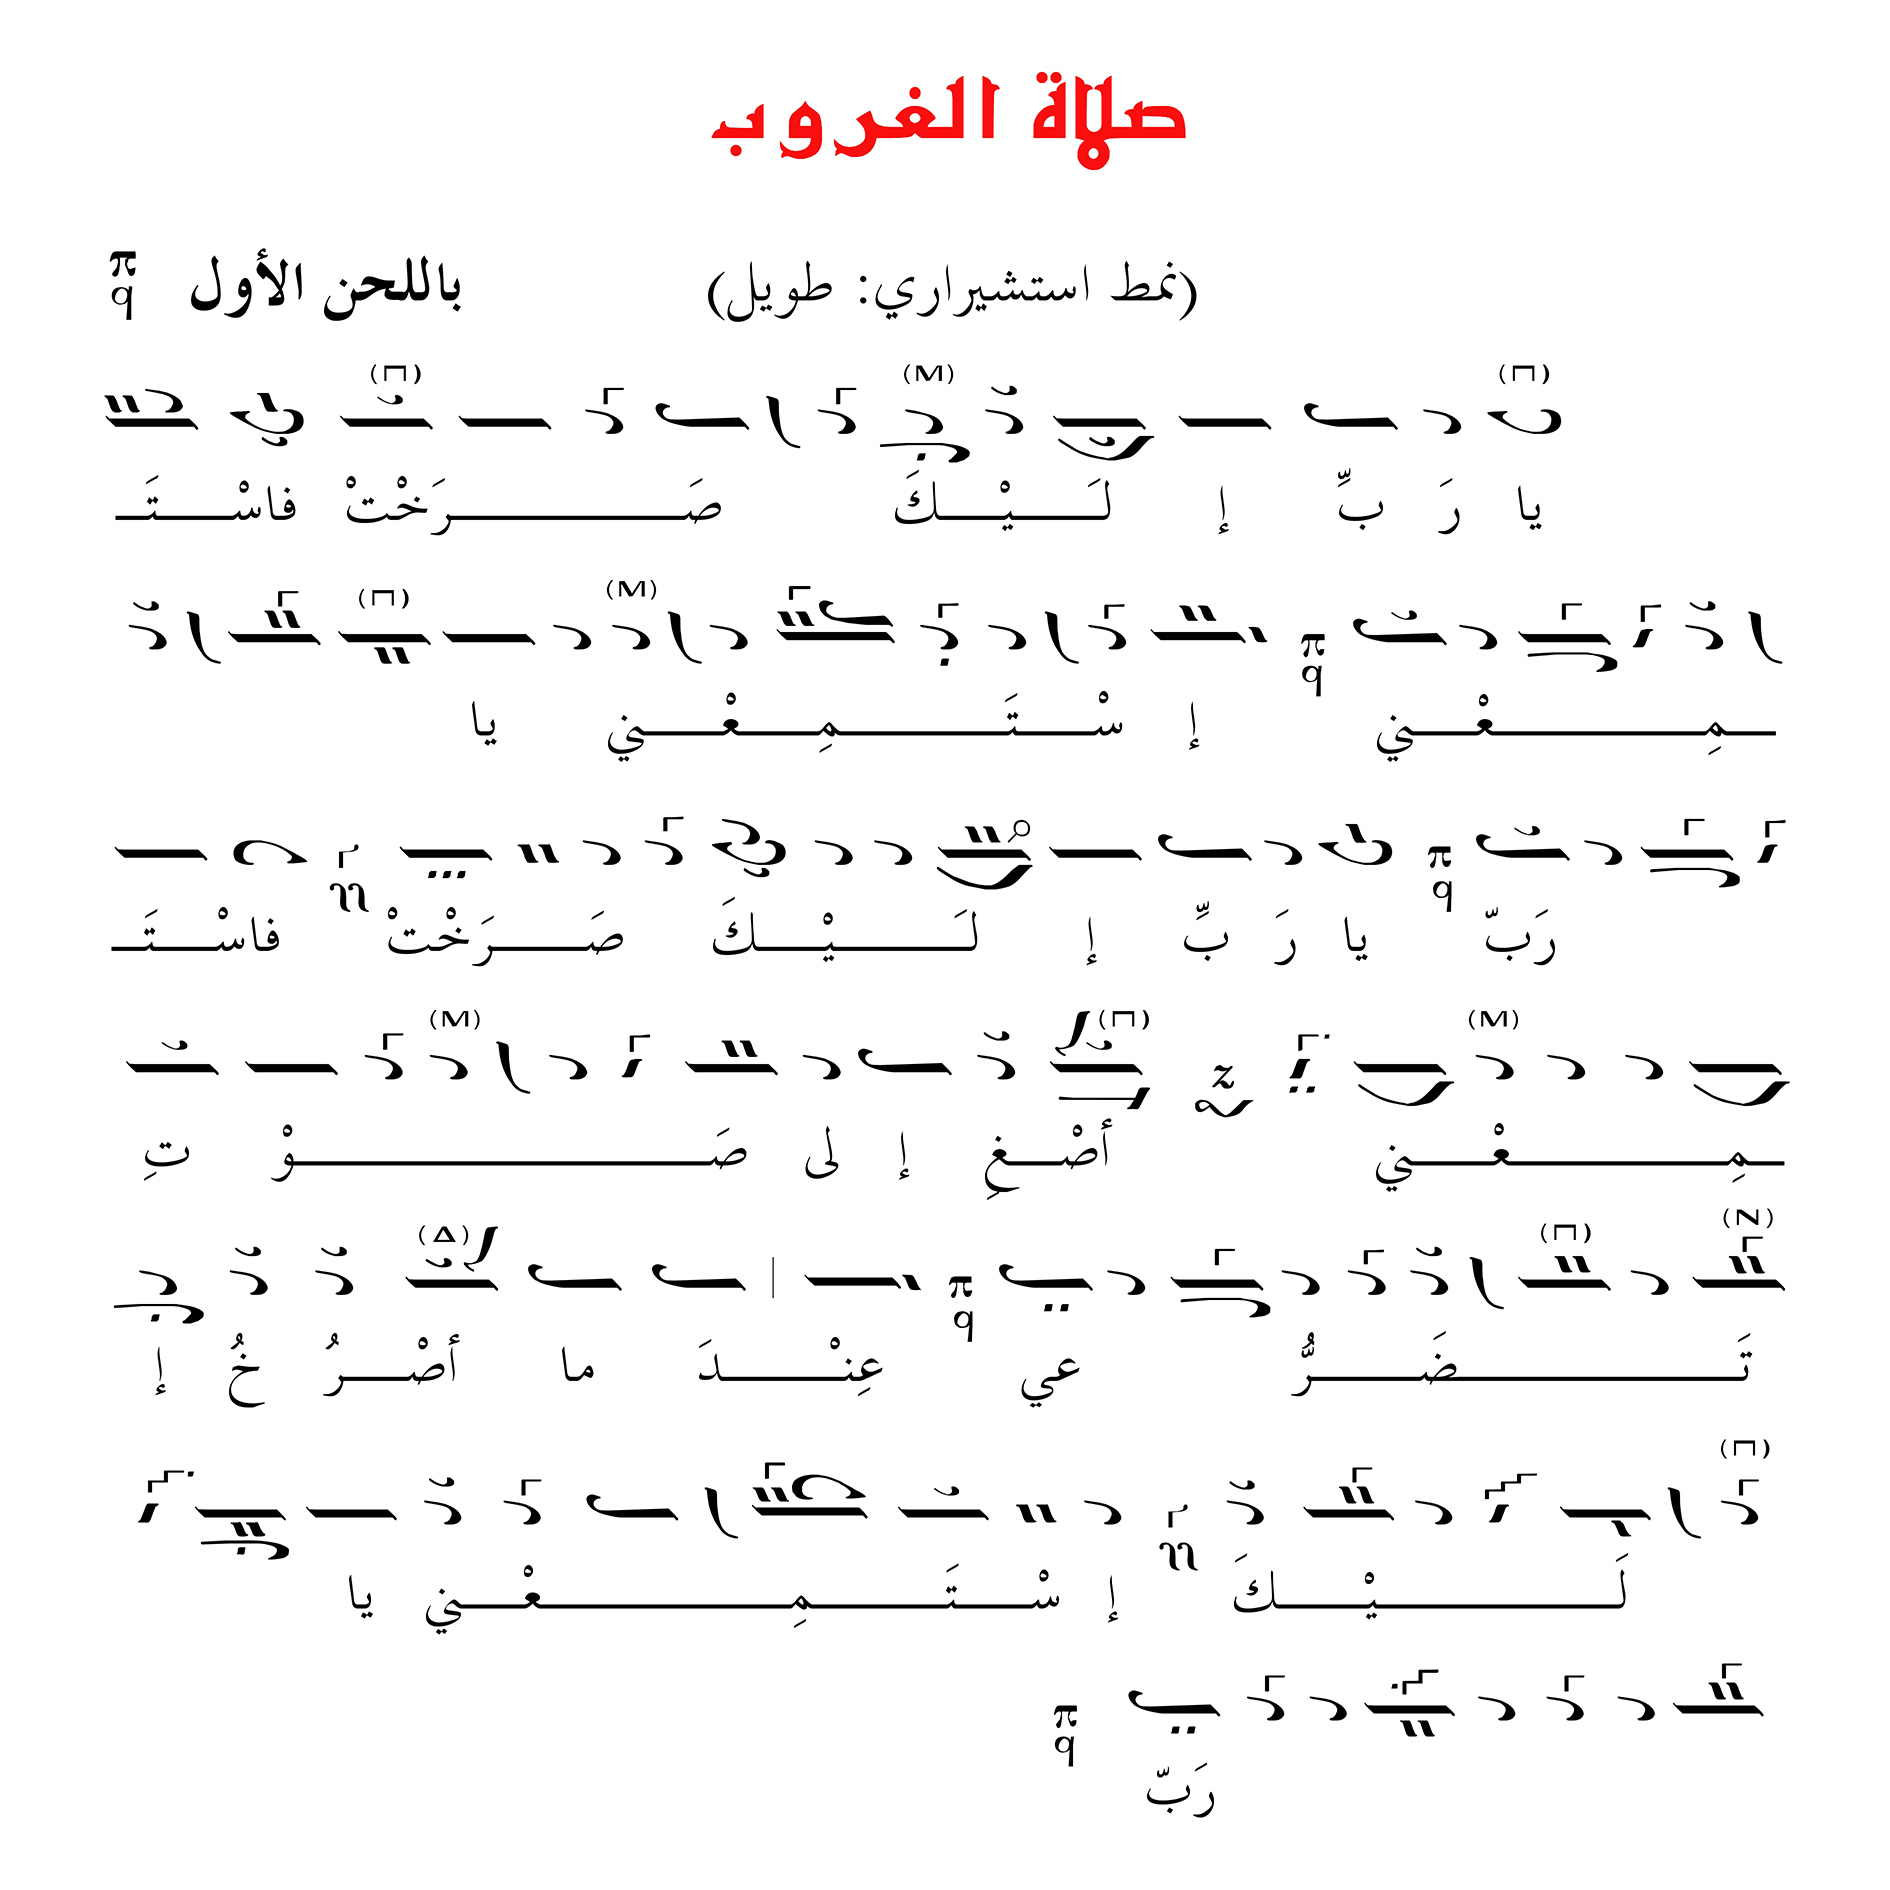 صلاة الغروب
(نمط استشيراري: طويل) باللحن الأول
يا رَ بِّ إ لَيْكَ صَرَخْتْ فاسْتَـ
ـمِعْني إ سْتَمِعْني يا
رَبّ يا رَ بِّ إ لَيْكَ صَرَخْتْ فاسْتَـ
ـمِعْني أصْغِ إ لى صَوْ تِ
تَضَرُّ عي عِنْدَ ما أصْرُ خُ إ
لَيْكَ إ سْتَمِعْني يا
رَبّ